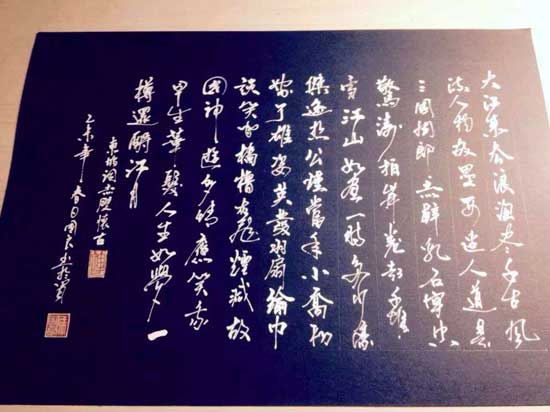 大江东去浪淘尽千古风
流人物故垒西边人道是
三国周郎赤壁乱石穿空
驚涛拍岸卷起千堆
雪江山如画一时多少豪
傑遥想公瑾当年小喬初
嫁了雄姿英发羽扇纶巾
谈笑间樯橹灰飛煙滅故
國神遊多情應笑我
早生華髮人生如夢一
樽還酹江月
東坡词赤壁怀古
乙未年春日